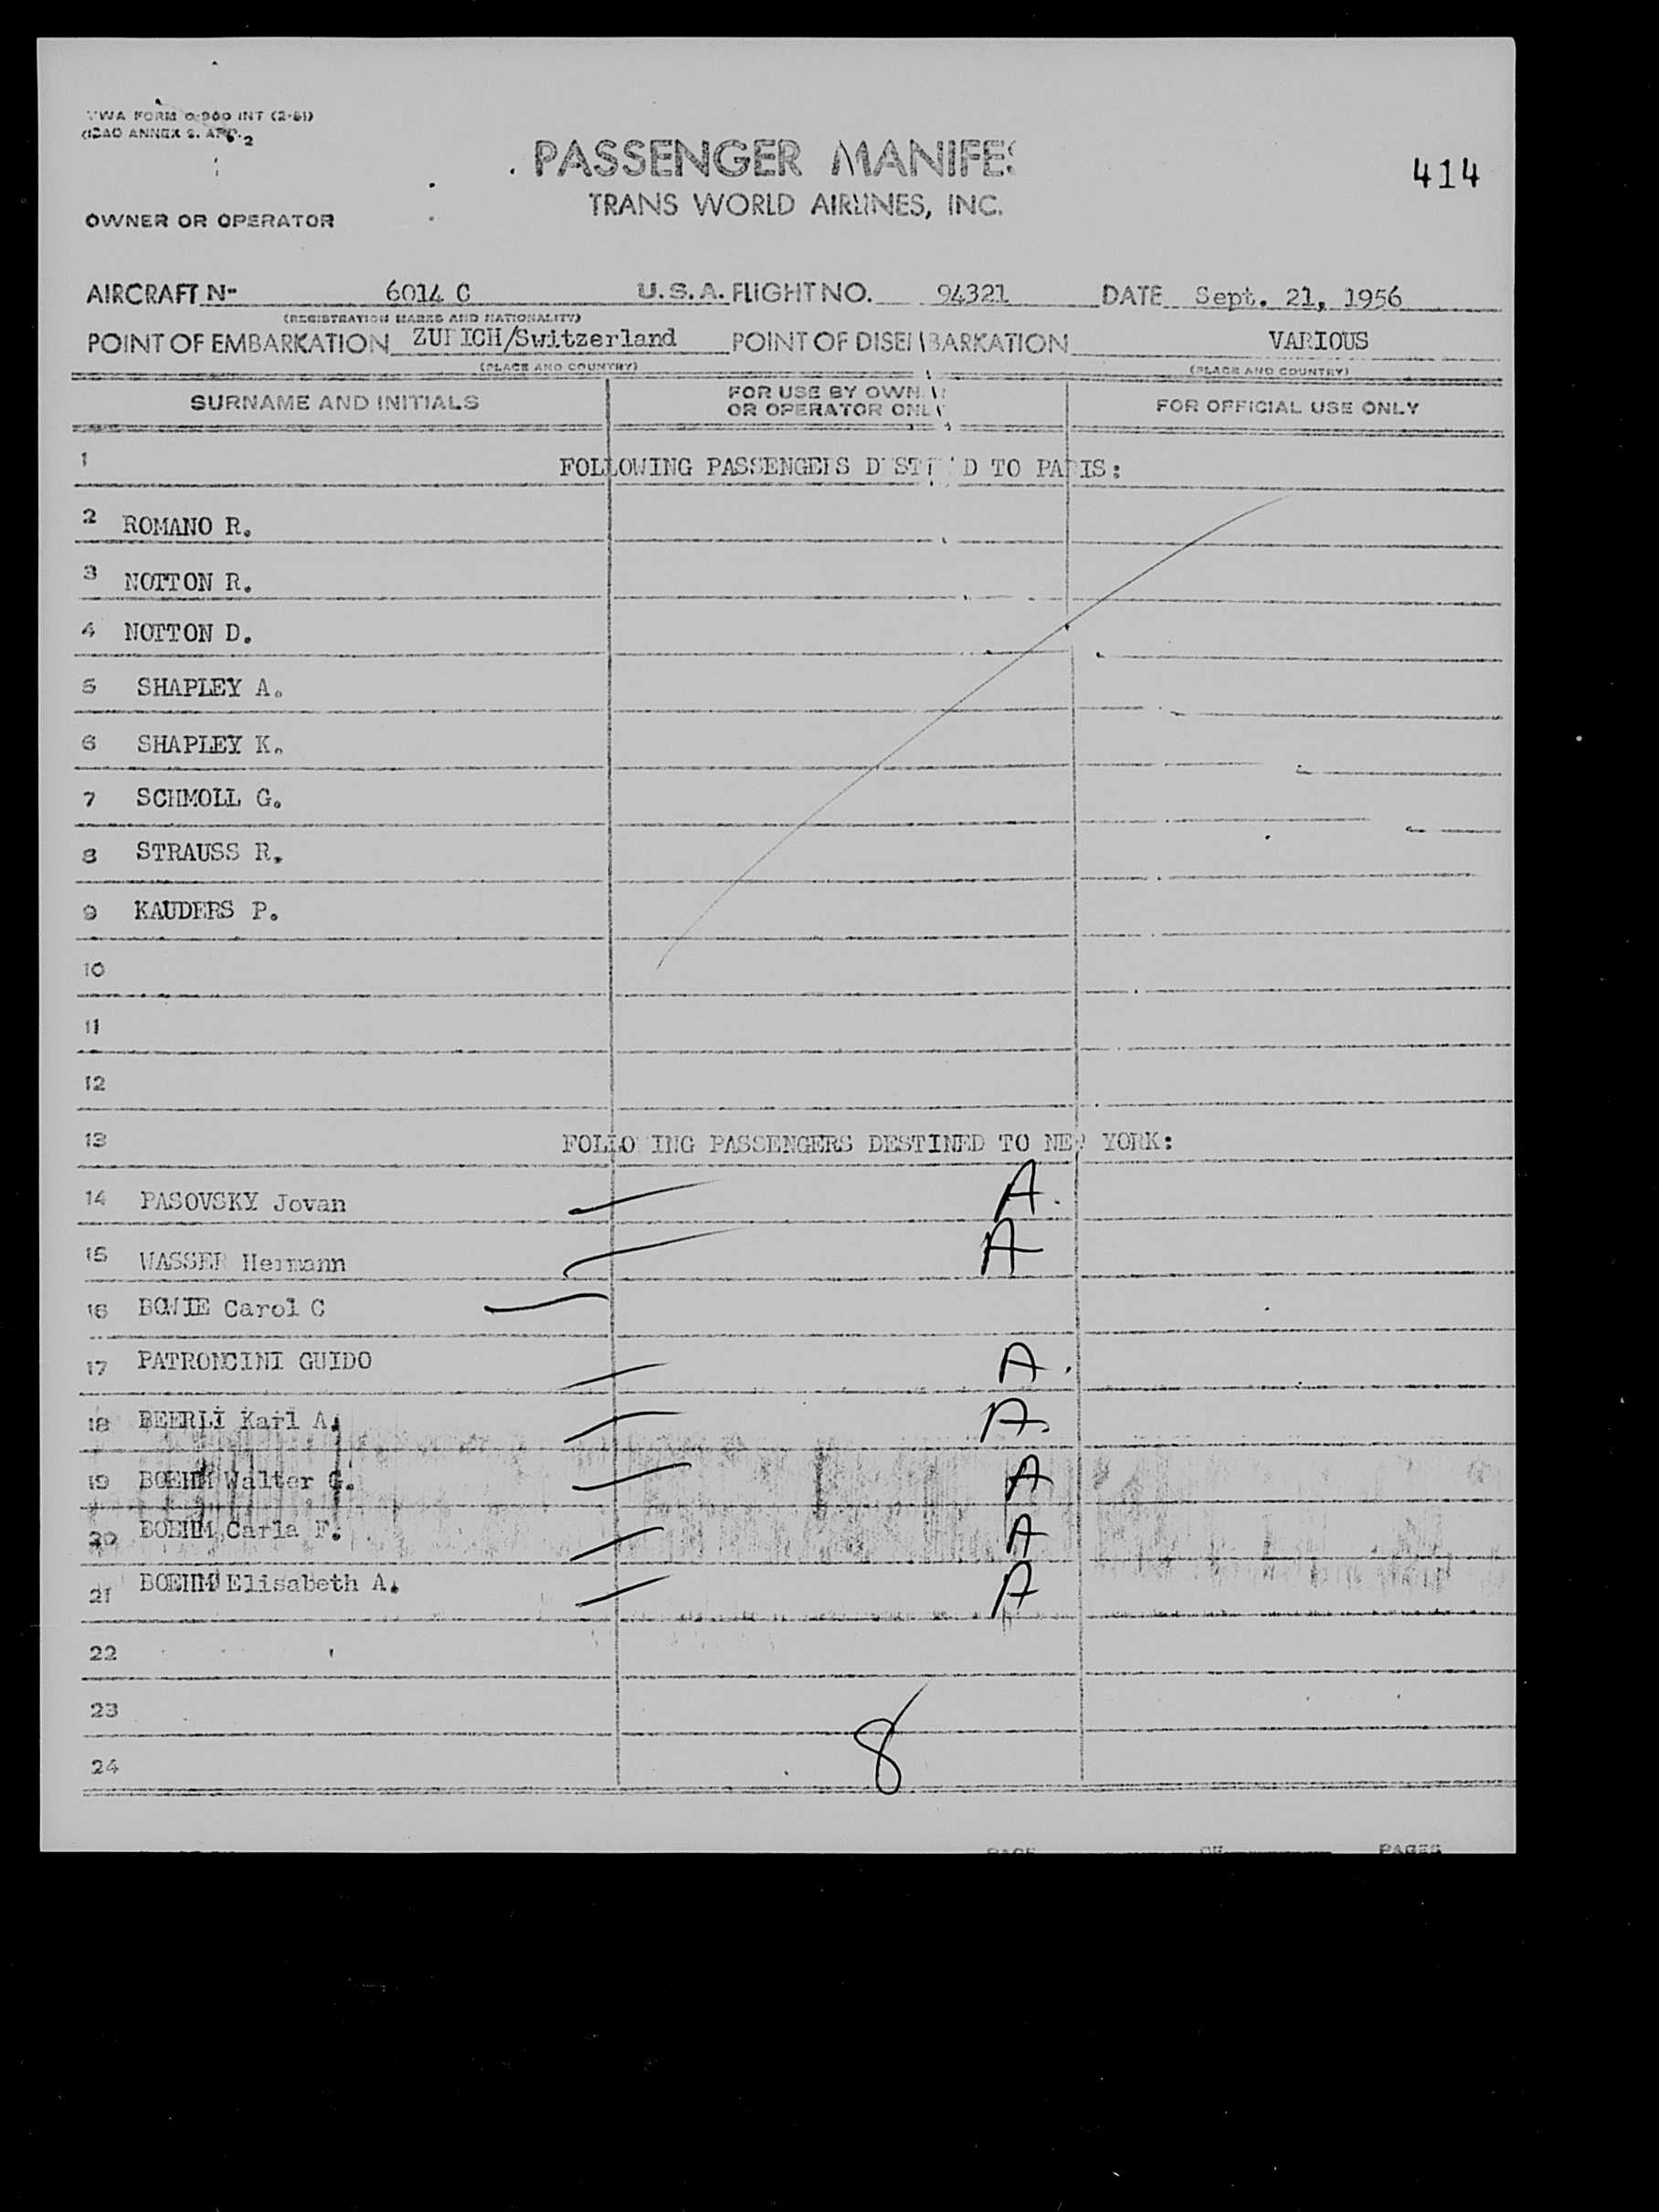 TWA FORM O-900 INT (2-51)
(ICAO ANNEX 9. APP. 2
PASSENGER MANIFES
414
TRANS WORLD AIRLINES, INC.
OWNER OR OPERATOR
AIRCRAFT N- 6014 C U.S.A. FLIGHT NO. 94321 DATE Sept. 21, 1956
(REGISTRATION MARKS AND NATIONALITY)
POINT OF EMBARKATION ZURICH/Switzerland POINT OF DISEMBARKATION VARIOUS
(PLACE AND COUNTRY) (PLACE AND COUNTRY)
SURNAME AND INITIALS FOR USE BY OWN FOR OFFICIAL USE ONLY
OR OPERATOR ONLY
1 FOLLOWING PASSENGERS DESTINED TO PARIS:
2 ROMANO R.
3 NOTTON R.
4 NOTTON D.
5 SHAPLEY A.
6 SHAPLEY K.
7 SCHMOLL G.
8 STRAUSS R.
9 KAUDERS P.
10
11
12
13 FOLLOWING PASSENGERS DESTINED TO NEW YORK:
14 PASOVSKY Jovan A.
15 WASSER Hermann A
16 BOWIE Carol C
17 PATRONCINI GUIDO A.
18 BEERLI Karl A. A.
19 BOEHM Walter G. A
20 BOEHM Carla F. A
21 BOEHM Elisabeth A. A
22
23
8
24
PAGE OF PAGES